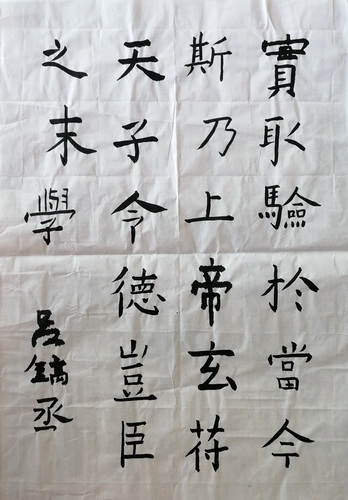 實取驗於當今
斯乃上帝玄符
天子令德豈臣
之末學
呂丞